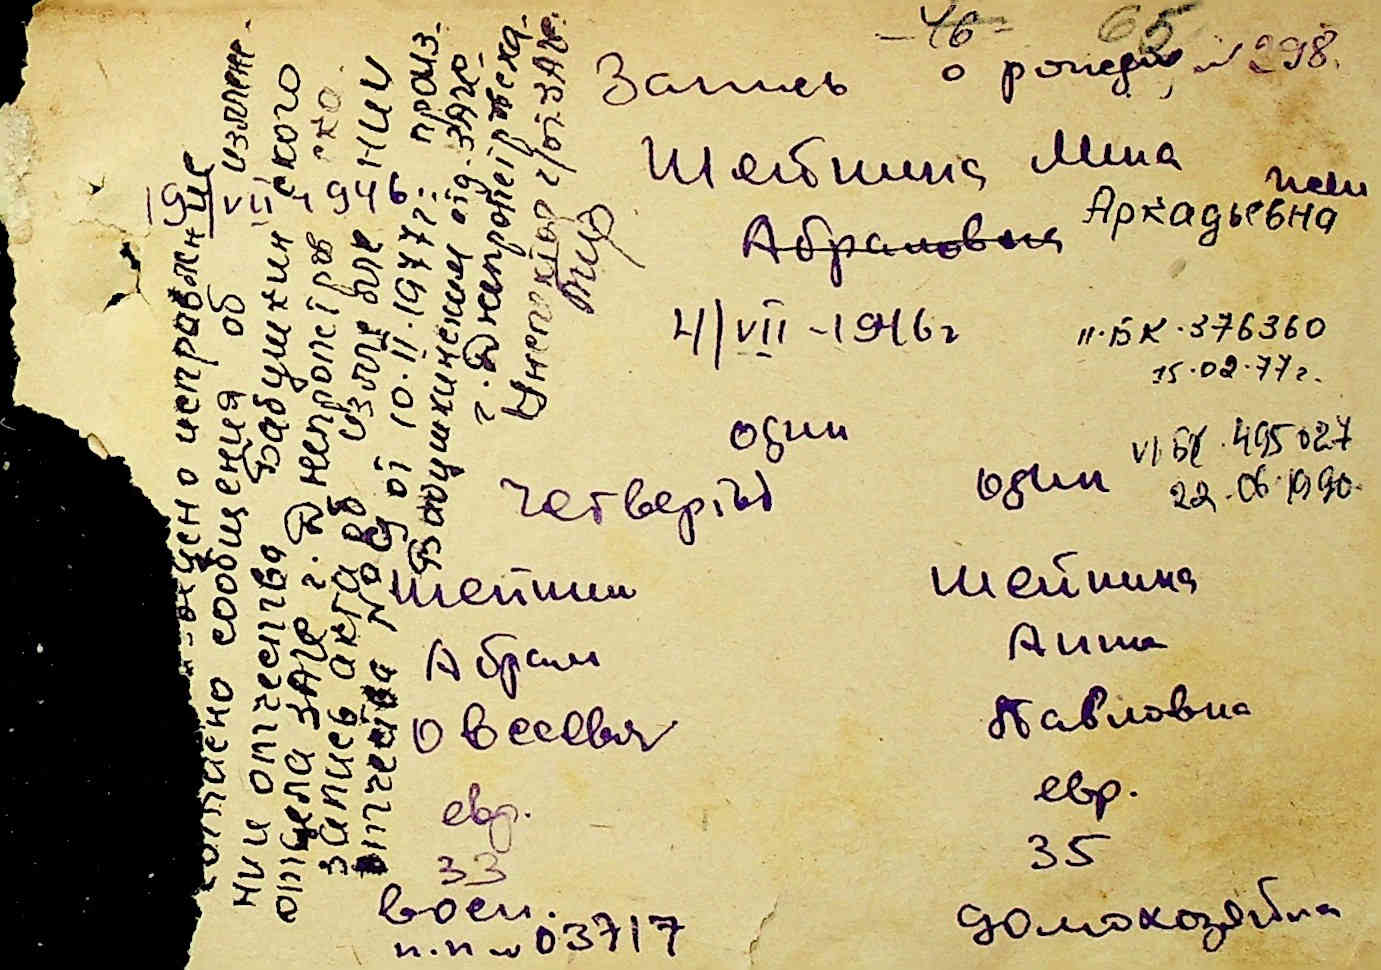 - 46 -
65
Запись о рожден. № 298.
Шейнина Мина
Абрамовна
Аркадьевна
4/VII - 1946 г
II.БК.376360
15.02.77 г.
один
VI БК.495027
22.06.1990.
четвертый
один
Шейнин
Шейнина
Абрам
Анна
Овсеевич
Павловна
евр.
евр.
33
35
воен.
п.п № 03717
домохозяйка
19/VII 1946
исправление
согласно сообщения об изменении отчества
Бабушкинского
отдела ЗАГС г. Днепропетровска
запись акта об изменении
отчества № 9 от 10.II.1977 г. произ-
Бабушкинским отд. ЗАГС
г. Днепропетровска.